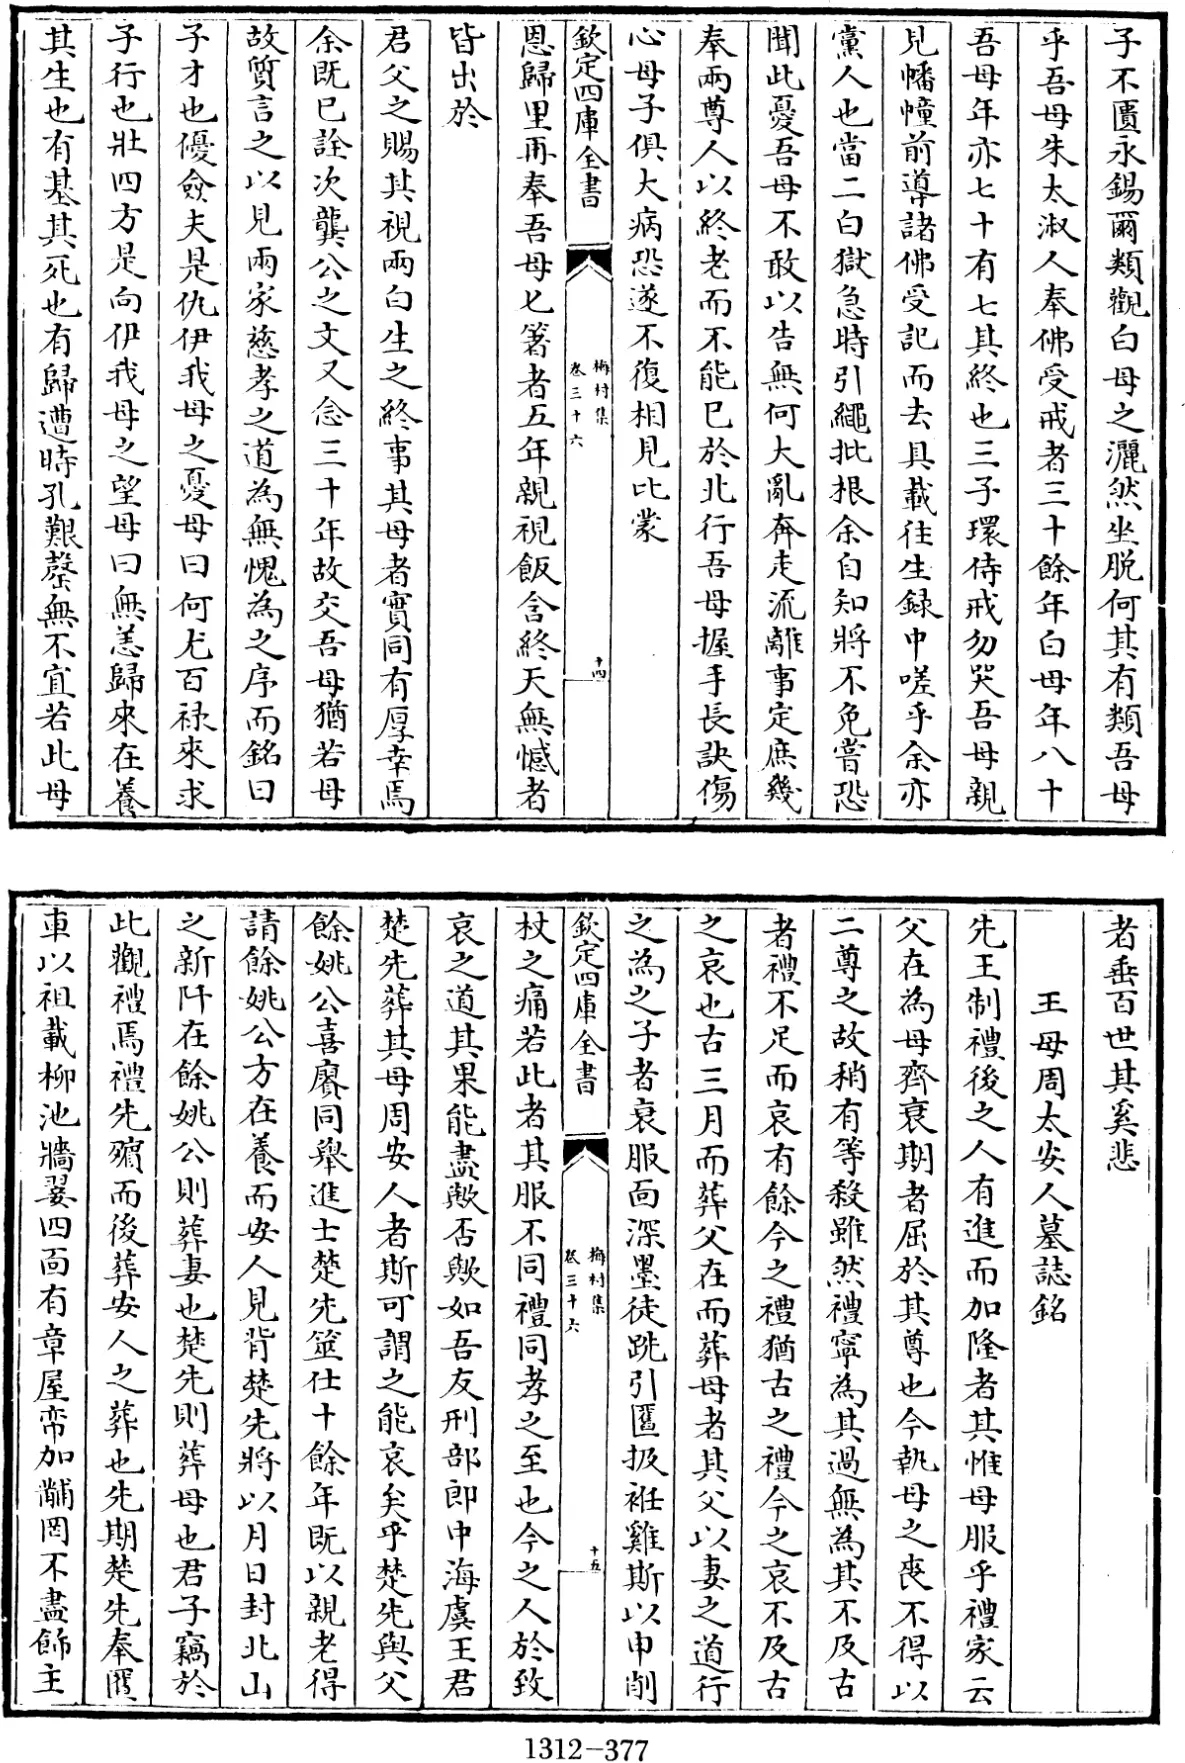 子不匱永錫爾類觀白母之灑然坐脫何其有類吾母
乎吾母朱太淑人奉佛受戒者三十餘年白母年八十
吾母年亦七十有七其終也三子環侍戒勿哭吾母親
見幡幢前導諸佛受記而去具載往生録中嗟乎余亦
黨人也當二白獄急時引繩批根余自知將不免嘗恐
聞此憂吾母不敢以告無何大亂奔走流離事定庶幾
奉兩尊人以終老而不能已於北行吾母握手長訣傷
心母子俱大病恐遂不復相見比蒙
欽定四庫全書
梅村集
卷三十六
十四
恩歸里再奉吾母匕箸者五年親視飯含終天無憾者
皆出於
君父之賜其視兩白生之終事其母者實同有厚幸焉
余既已詮次龔公之文又念三十年故交吾母猶若母
故質言之以見兩家慈孝之道為無愧為之序而銘曰
子才也優僉夫是仇伊我母之憂母曰何尤百禄來求
子行也壯四方是向伊我母之望母曰無恙歸來在養
其生也有基其死也有歸遭時孔艱罄無不宜若此母
者垂百世其奚悲
王母周太安人墓誌銘
先王制禮後之人有進而加隆者其惟母服乎禮家云
父在為母齊衰期者屈於其尊也今執母之喪不得以
二尊之故稍有等殺雖然禮寧為其過無為其不及古
者禮不足而哀有餘今之禮猶古之禮今之哀不及古
之哀也古三月而葬父在而葬母者其父以妻之道行
之為之子者衰服面深墨徒跣引匶扱衽雞斯以申削
欽定四庫全書
梅村集
卷三十六
十五
杖之痛若此者其服不同禮同孝之至也今之人於致
哀之道其果能盡歟否歟如吾友刑部郎中海虞王君
楚先葬其母周安人者斯可謂之能哀矣乎楚先與父
餘姚公喜賡同舉進士楚先筮仕十餘年既以親老得
請餘姚公方在養而安人見背楚先將以月日封北山
之新阡在餘姚公則葬妻也楚先則葬母也君子竊於
此觀禮焉禮先殯而後葬安人之葬也先期楚先奉匶
車以祖載柳池牆翣四面有章屋帟加黼罔不盡飾主
1312-377